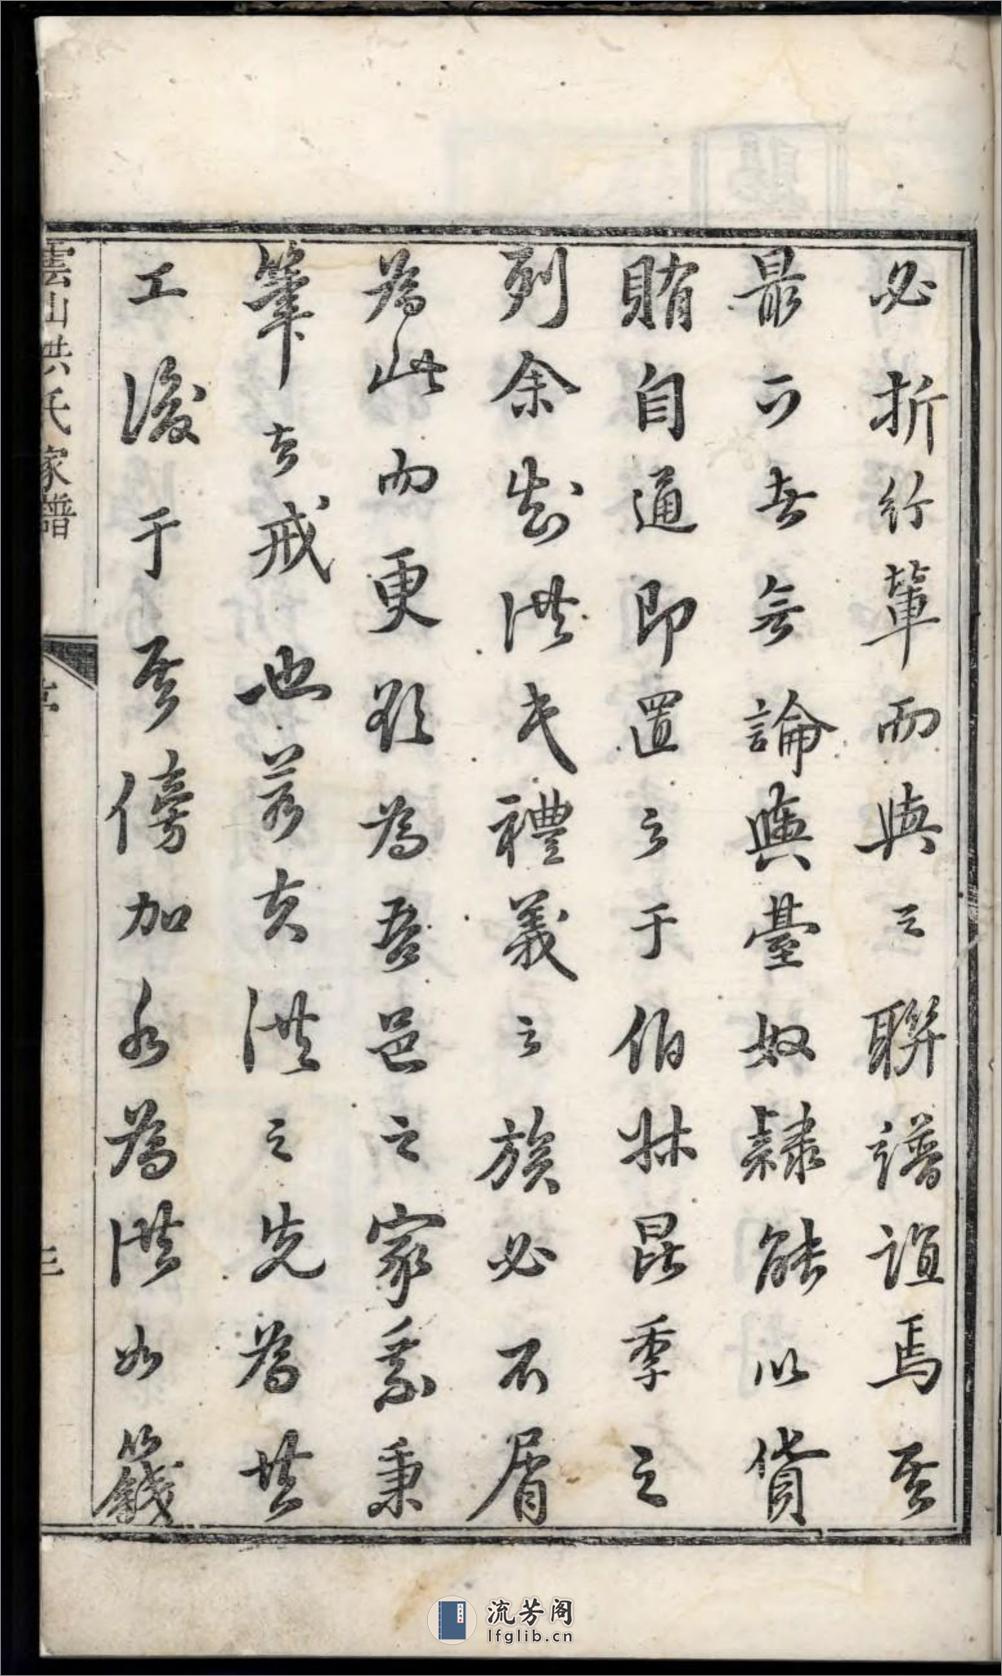 必折行輩而與之聯譜誼焉其
最下者無論輿臺奴隸能以貨
賄自通即置之于伯叔昆季之
列余知洪氏禮義之族必不屑
為此而更欲為吾邑之家乘秉
筆者戒也若夫洪之先為共
工後于其傍加水為洪如籛
雲山洪氏家譜
序
三
流芳阁
lfglib.cn